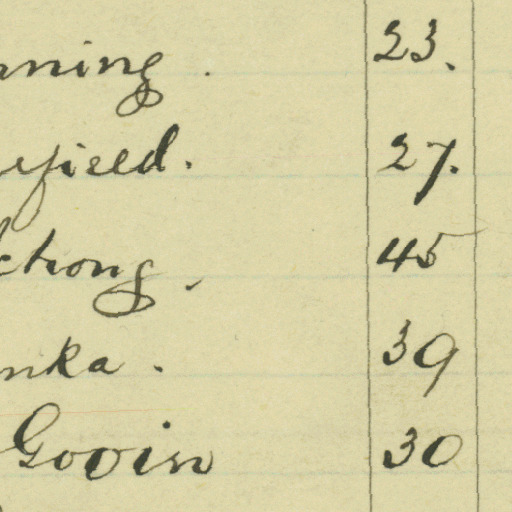 nning . 23.
yfield. 27.
ctrong. 45
nka. 39
Gooin 30